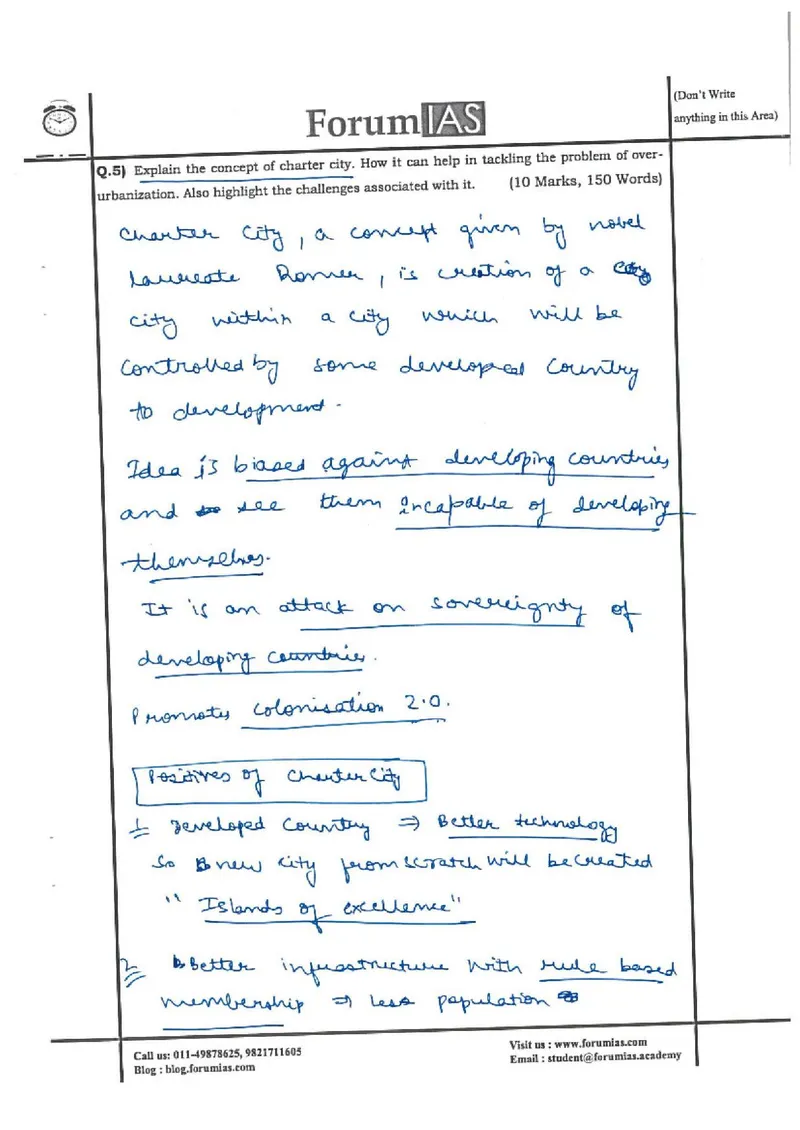 (Don't Write
anything in this Area)
ForumIAS
Q.5) Explain the concept of charter city. How it can help in tackling the problem of over-
urbanization. Also highlight the challenges associated with it. (10 Marks, 150 Words)
Charter City, a concept given by nobel
Laureate Romer, is creation of a
city within a city which will be
controlled by some developed country
to development.
Idea is biased against developing countries
and see them incapable of developing
themselves.
It is an attack on sovereignty of
developing countries.
Promotes colonisation 2.0.
Positives of Charter City
1 Developed Country ⇒ Better technology
So new city from scratch will be created
"Islands of excellence"
2 Better infrastructure with rule based
membership ⇒ less population
Call us: 011-49878625, 9821711605
Blog : blog.forumias.com
Visit us : www.forumias.com
Email : student@forumias.academy